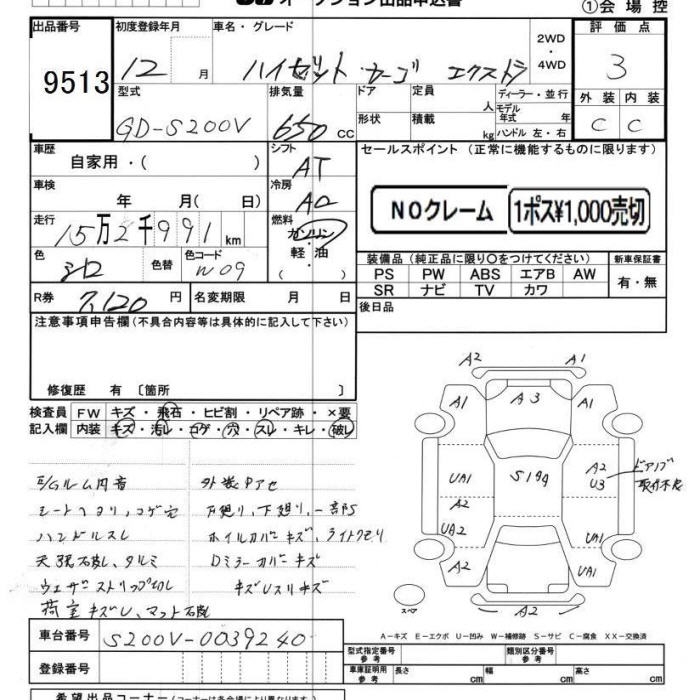 オークション出品申込書
①会場控
出品番号 初度登録年月 車名・グレード 2WD・4WD 評価点
9513 12月 ハイゼット カーゴ エクストラ 3
型式 排気量 ドア 定員 人 ディーラー・並行 外装 内装
GD-S200V 650 cc 形状 積載 kg モデル年式 年 ハンドル 左・右 C C
車歴 自家用・( ) シフト AT セールスポイント (正常に機能するものに限ります)
車検 年 月( 日) 冷房 AC NOクレーム 1ポス¥1,000売切
走行 15万2千991km 燃料 ガソリン・軽油 ( )
色 シロ 色替 色コード W09 装備品(純正品に限り○をつけてください) 新車保証書
PS PW ABS エアB AW 有・無
SR ナビ TV カワ
R券 7,120円 名変期限 月 日 後日品
注意事項申告欄(不具合内容等は具体的に記入して下さい)
修復歴 有 〔箇所 〕
検査員 FW キズ・飛石・ヒビ割・リペア跡・×要
記入欄 内装 キズ・汚レ・コゲ・穴・スレ・キレ・破レ
E/Gルーム内音 外装
シートヘタリ、コゲ穴 下廻り、一部サ
ハンドルスレ ホイルカバーキズ、ライトクモリ
天張破レ、タルミ Dミラーカバーキズ
ウェザーストリップ切レ
荷室キズU、マット破レ
A2 A1
A1 A3 A1
UA1 S199 A2 U3 ドアノブ取付不良
A2
UA2 UA1
A2 UA1
A2
スペア
A−キズ E−エクボ U−凹み W−補修跡 S−サビ C−腐食 XX−交換済
車台番号 S200V-0039240 型式指定番号 参考 類別区分番号 参考
登録番号 車庫証明用 参考 長さ cm 幅 cm 高さ cm
希望出品コーナー